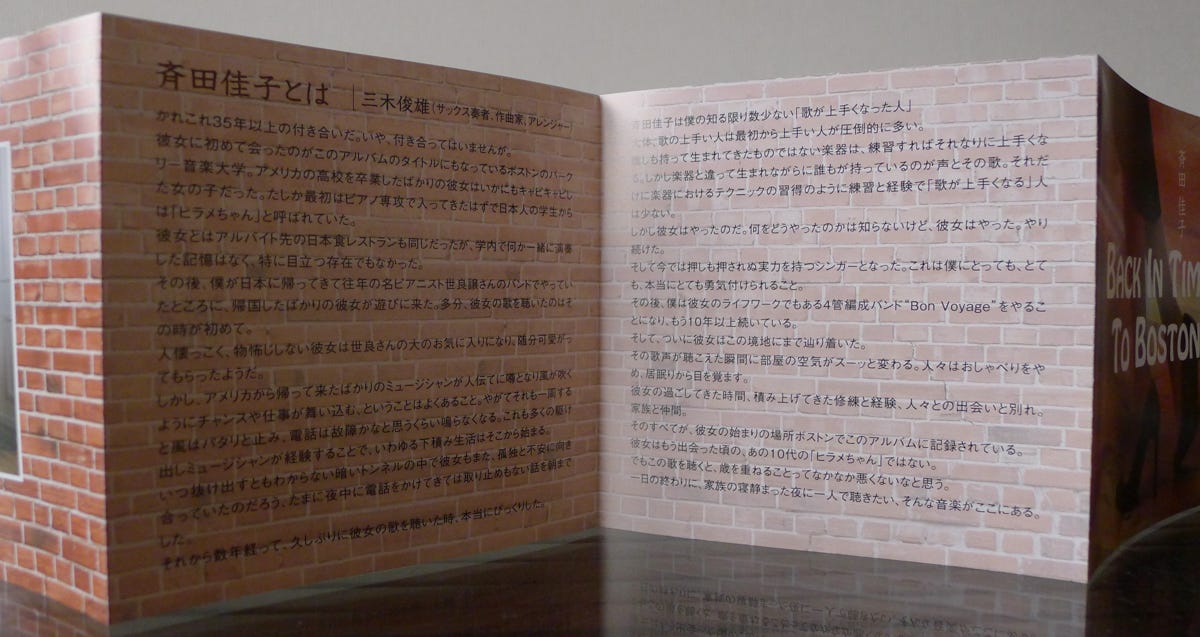 斉田佳子とは | 三木俊雄(サックス奏者、作曲家、アレンジャー)
かれこれ35年以上の付き合いだ。いや、付き合ってはいませんが。
彼女に初めて会ったのがこのアルバムのタイトルにもなっているボストンのバーク
リー音楽大学。アメリカの高校を卒業したばかりの彼女はいかにもキャピキャピし
た女の子だった。たしか最初はピアノ専攻で入ってきたはずで日本人の学生から
は「ヒラメちゃん」と呼ばれていた。
彼女とはアルバイト先の日本食レストランも同じだったが、学内で何か一緒に演奏
した記憶はなく、特に目立つ存在でもなかった。
その後、僕が日本に帰ってきて往年の名ピアニスト世良譲さんのバンドでやってい
たところに、帰国したばかりの彼女が遊びに来た。多分、彼女の歌を聴いたのはそ
の時が初めて。
人懐っこく、物怖じしない彼女は世良さんの大のお気に入りになり。随分可愛がっ
てもらったようだ。
しかし、アメリカから帰って来たばかりのミュージシャンが人伝てに噂となり風が吹く
ようにチャンスや仕事が舞い込む、ということはよくあること。やがてそれも一周する
と風はパタリと止み、電話は故障かなと思うくらい鳴らなくなる。これも多くの駆け
出しミュージシャンが経験することで、いわゆる下積み生活はそこから始まる。
いつ抜け出すともわからない暗いトンネルの中で彼女もまた、孤独と不安に向き
合っていたのだろう、たまに夜中に電話をかけてきては取り止めもない話を朝まで
した。
それから数年経って、久しぶりに彼女の歌を聴いた時、本当にびっくりした。
斉田佳子は僕の知る限り数少ない「歌が上手くなった人」
大体、歌の上手い人は最初から上手い人が圧倒的に多い。
誰しも持って生まれてきたものではない楽器は、練習すればそれなりに上手くな
る。しかし楽器と違って生まれながらに誰もが持っているのが声とその歌。それだ
けに楽器におけるテクニックの習得のように練習と経験で「歌が上手くなる」人
は少ない。
しかし彼女はやったのだ。何をどうやったのかは知らないけど、彼女はやった。やり
続けた。
そして今では押しも押されぬ実力を持つシンガーとなった。これは僕にとっても、とて
も、本当にとても勇気付けられること。
その後、僕は彼女のライフワークでもある4管編成バンド“Bon Voyage”をやるこ
とになり、もう10年以上続いている。
そして、ついに彼女はこの境地にまで辿り着いた。
その歌声が聴こえた瞬間に部屋の空気がスーッと変わる。人々はおしゃべりをや
め、居眠りから目を覚ます。
彼女の過ごしてきた時間、積み上げてきた修練と経験、人々との出会いと別れ。
家族と仲間。
そのすべてが、彼女の始まりの場所ボストンでこのアルバムに記録されている。
彼女はもう出会った頃の、あの10代の「ヒラメちゃん」ではない。
でもこの歌を聴くと、歳を重ねることってなかなか悪くないなと思う。
一日の終わりに、家族の寝静まった夜に一人で聴きたい、そんな音楽がここにある。
斉田佳子
BACK IN TIM
TO BOSTON